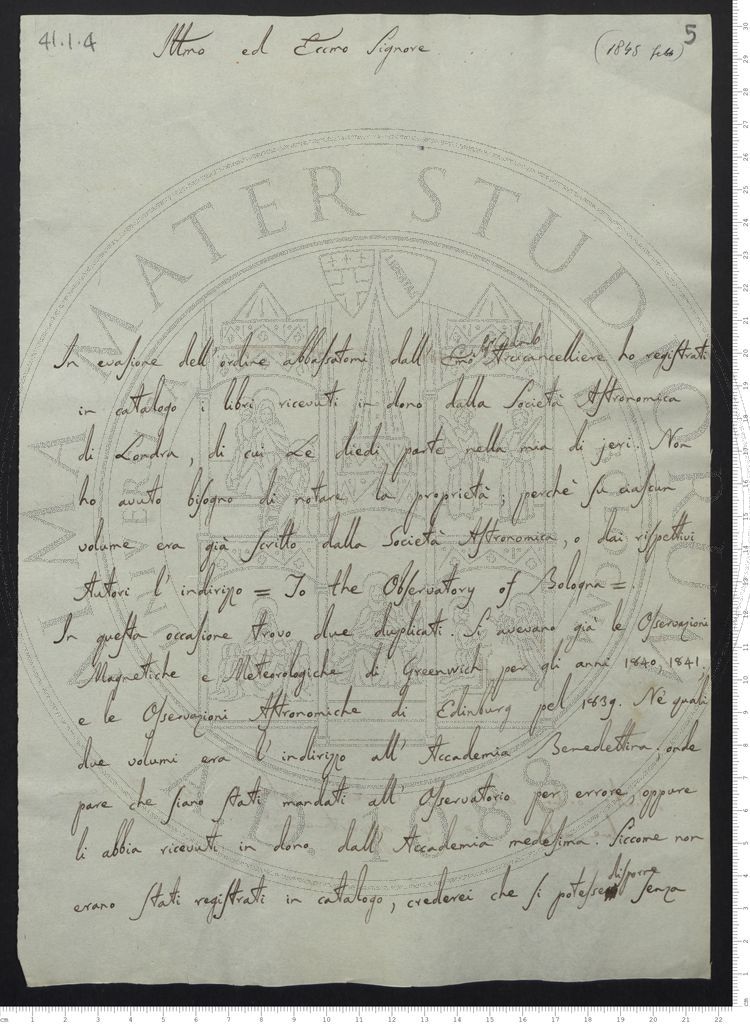 41.1.4
5
Illmo ed Eccmo Signore
(1845 febb)
In evasione dell'ordine abbassatomi dall' Emo Arcicancelliere ho registrati
in catalogo i libri ricevuti in dono dalla Società Astronomica
di Londra, di cui Le diedi parte nella mia di jeri. Non
ho avuto bisogno di notare la proprietà; perchè su ciascun
volume era già scritto dalla Società Astronomica, o dai rispettivi
Autori l'indirizzo = To the Observatory of Bologna =.
In questa occasione trovo due duplicati. Si avevano già le Osservazioni
Magnetiche e Meteorologiche di Greenwich per gli anni 1840, 1841.
e le Osservazioni Astronomiche di Edinburg pel 1839. Nè quali
due volumi era l'indirizzo all' Accademia Benedettina; onde
pare che siano stati mandati all' Osservatorio per errore, oppure
li abbia ricevuti in dono dall' Accademia medesima. Siccome non
disporre
erano stati registrati in catalogo, crederei che si potesse senza
ALMA MATER STUDIORUM
A.D. 1088
LIBERTAS